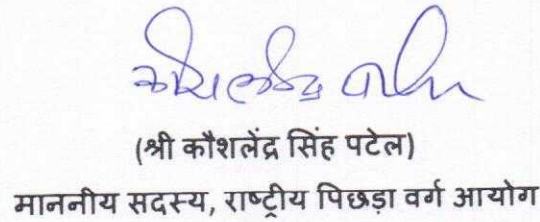 (श्री कौशलेंद्र सिंह पटेल)
माननीय सदस्य, राष्ट्रीय पिछड़ा वर्ग आयोग